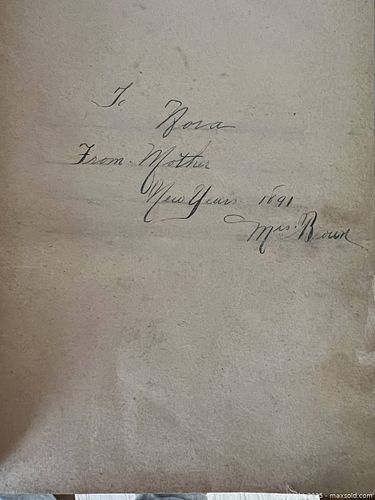 To
Nora
From Mother
New Years 1891
Mrs. Brown
maxsold.com